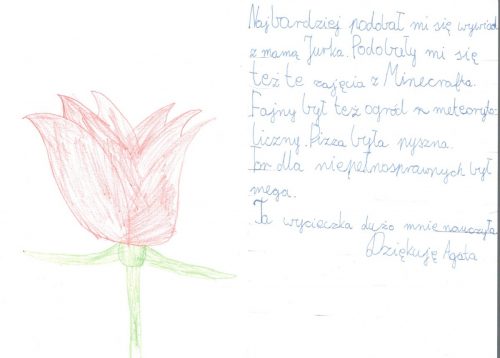 Najbardziej podobał mi się wywiad
z mamą Jurka. Podobały mi się
też te zajęcia z Minecrafta.
Fajny był też ogród meteorolo-
giczny. Pizza była pyszna.
Tor dla niepełnosprawnych był
mega.
Ta wycieczka dużo mnie nauczyła
Dziękuję Agata